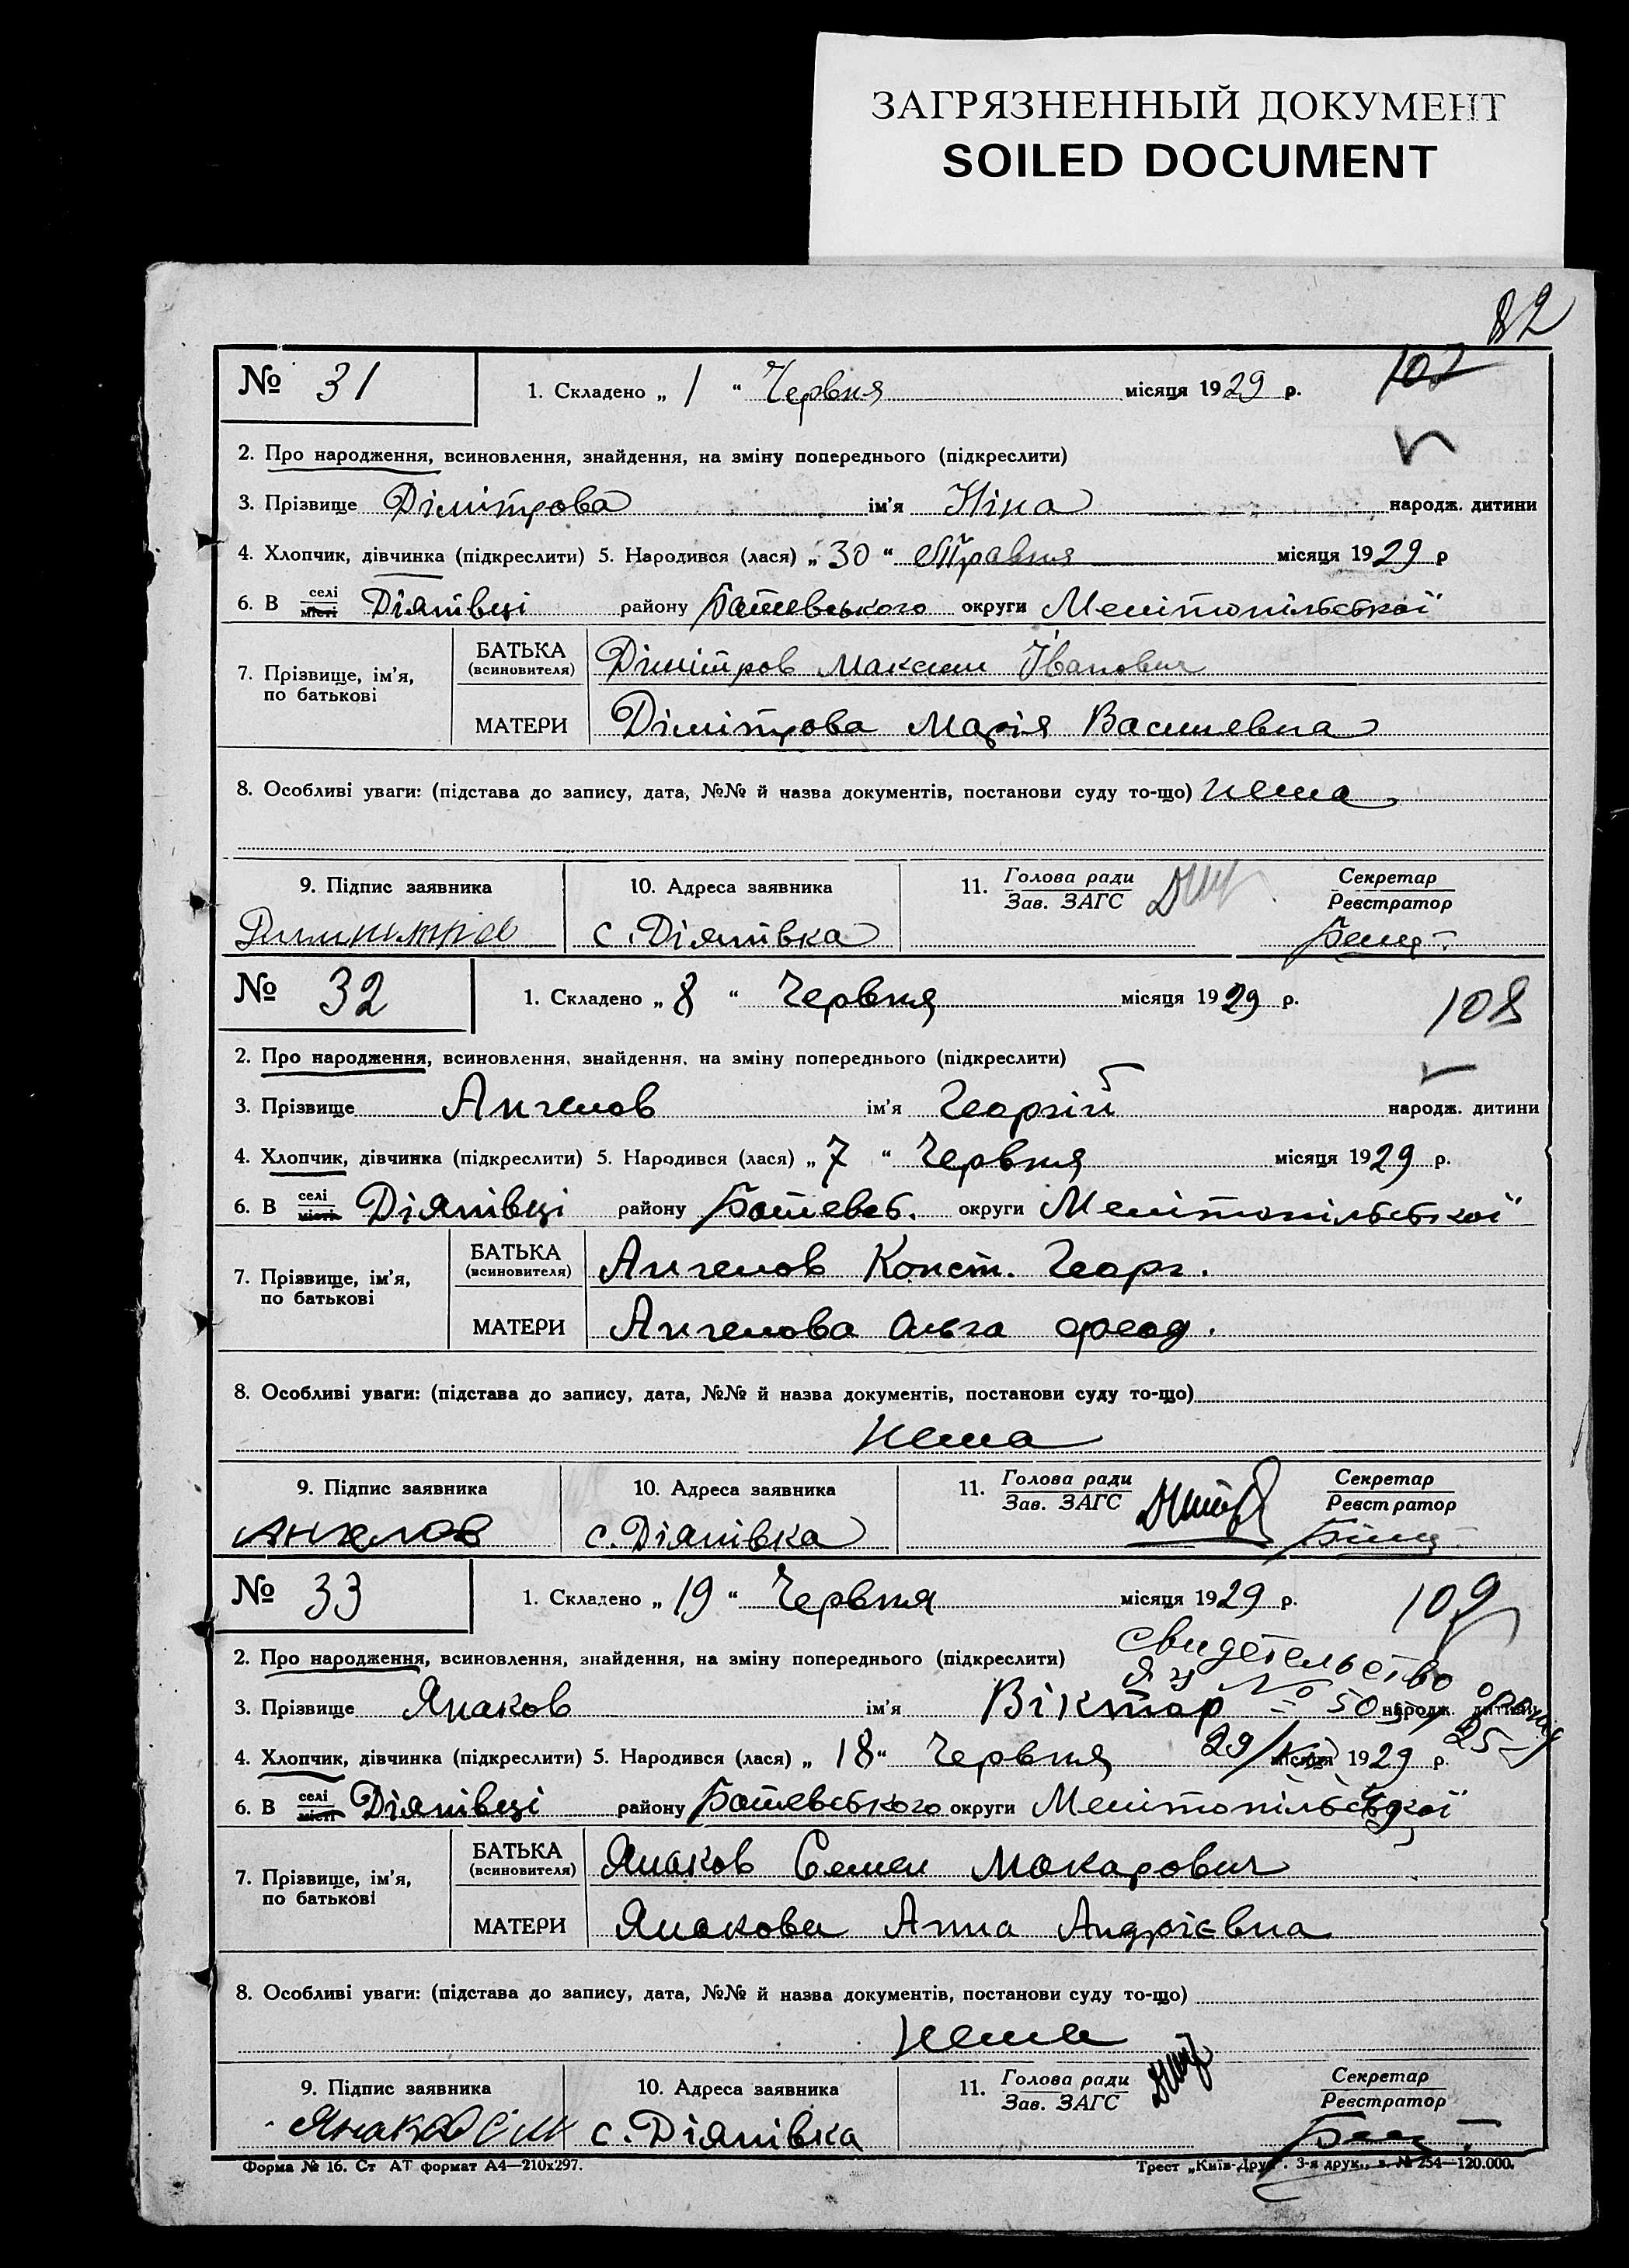 ЗАГРЯЗНЕННЫЙ ДОКУМЕНТ
SOILED DOCUMENT
82
№ 31 1. Складено „ 1 “ Червня місяця 1929 р. 107
2. Про народження, всиновлення, знайдення, на зміну попереднього (підкреслити)
3. Прізвище Дімітрова ім'я Ніна народж. дитини
4. Хлопчик, дівчинка (підкреслити) 5. Народився (лася) „ 30 “ Травня місяця 1929 р
6. В селі місті Діянівці району Ботевського округи Мелітопільської
7. Прізвище, ім'я, по батькові БАТЬКА (всиновителя) Дімітров Максим Іванович
МАТЕРИ Дімітрова Марія Василевна
8. Особливі уваги: (підстава до запису, дата, №№ й назва документів, постанови суду то-що) нема
9. Підпис заявника 10. Адреса заявника 11. Голова ради Зав. ЗАГС Секретар Реєстратор
с. Діянівка
№ 32 1. Складено „ 8 “ Червня місяця 1929 р. 108
2. Про народження, всиновлення, знайдення, на зміну попереднього (підкреслити)
3. Прізвище Ангелов ім'я Георгій народж. дитини
4. Хлопчик, дівчинка (підкреслити) 5. Народився (лася) „ 7 “ Червня місяця 1929 р.
6. В селі місті Діянівці району Ботевсь. округи Мелітопільської
7. Прізвище, ім'я, по батькові БАТЬКА (всиновителя) Ангелов Конст. Георг.
МАТЕРИ Ангелова Ольга Феод.
8. Особливі уваги: (підстава до запису, дата, №№ й назва документів, постанови суду то-що)
Нема
9. Підпис заявника 10. Адреса заявника 11. Голова ради Зав. ЗАГС Секретар Реєстратор
Ангелов с. Діянівка
№ 33 1. Складено „ 19 “ Червня місяця 1929 р. 109
свидетельство
2. Про народження, всиновлення, знайдення, на зміну попереднього (підкреслити)
3. Прізвище Янаков ім'я Віктор народж. дитини
4. Хлопчик, дівчинка (підкреслити) 5. Народився (лася) „ 18 “ Червня місяця 1929 р.
6. В селі місті Діянівці району Ботевського округи Мелітопільської
7. Прізвище, ім'я, по батькові БАТЬКА (всиновителя) Янаков Семен Макарович
МАТЕРИ Янакова Анна Андрієвна
8. Особливі уваги: (підстава до запису, дата, №№ й назва документів, постанови суду то-що)
Нема
9. Підпис заявника 10. Адреса заявника 11. Голова ради Зав. ЗАГС Секретар Реєстратор
Янаков с. Діянівка
Форма № 16. Ст АТ формат А4—210х297. Трест „Київ-Друк“. 3-я друк., з. № 254—120.000.